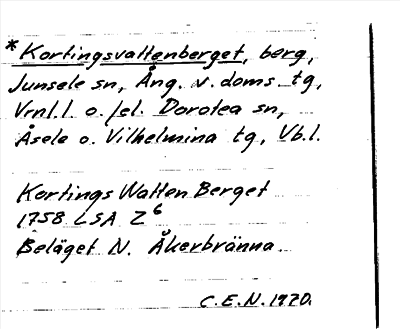 *Kortingsvattenberget, berg,
Junsele sn, Ång. v. doms. tg,
Vrnl.l. o. fel. Dorotea sn,
Åsele o. Vilhelmina tg, Vb.l.
Kortings Watten Berget
1758 LSA Z6
Beläget N. Åkerbränna.
C.E.N. 1920.